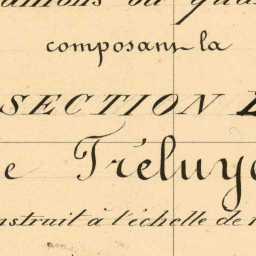 composant la
SECTION
e Tréluye
nstruit à l'échelle de